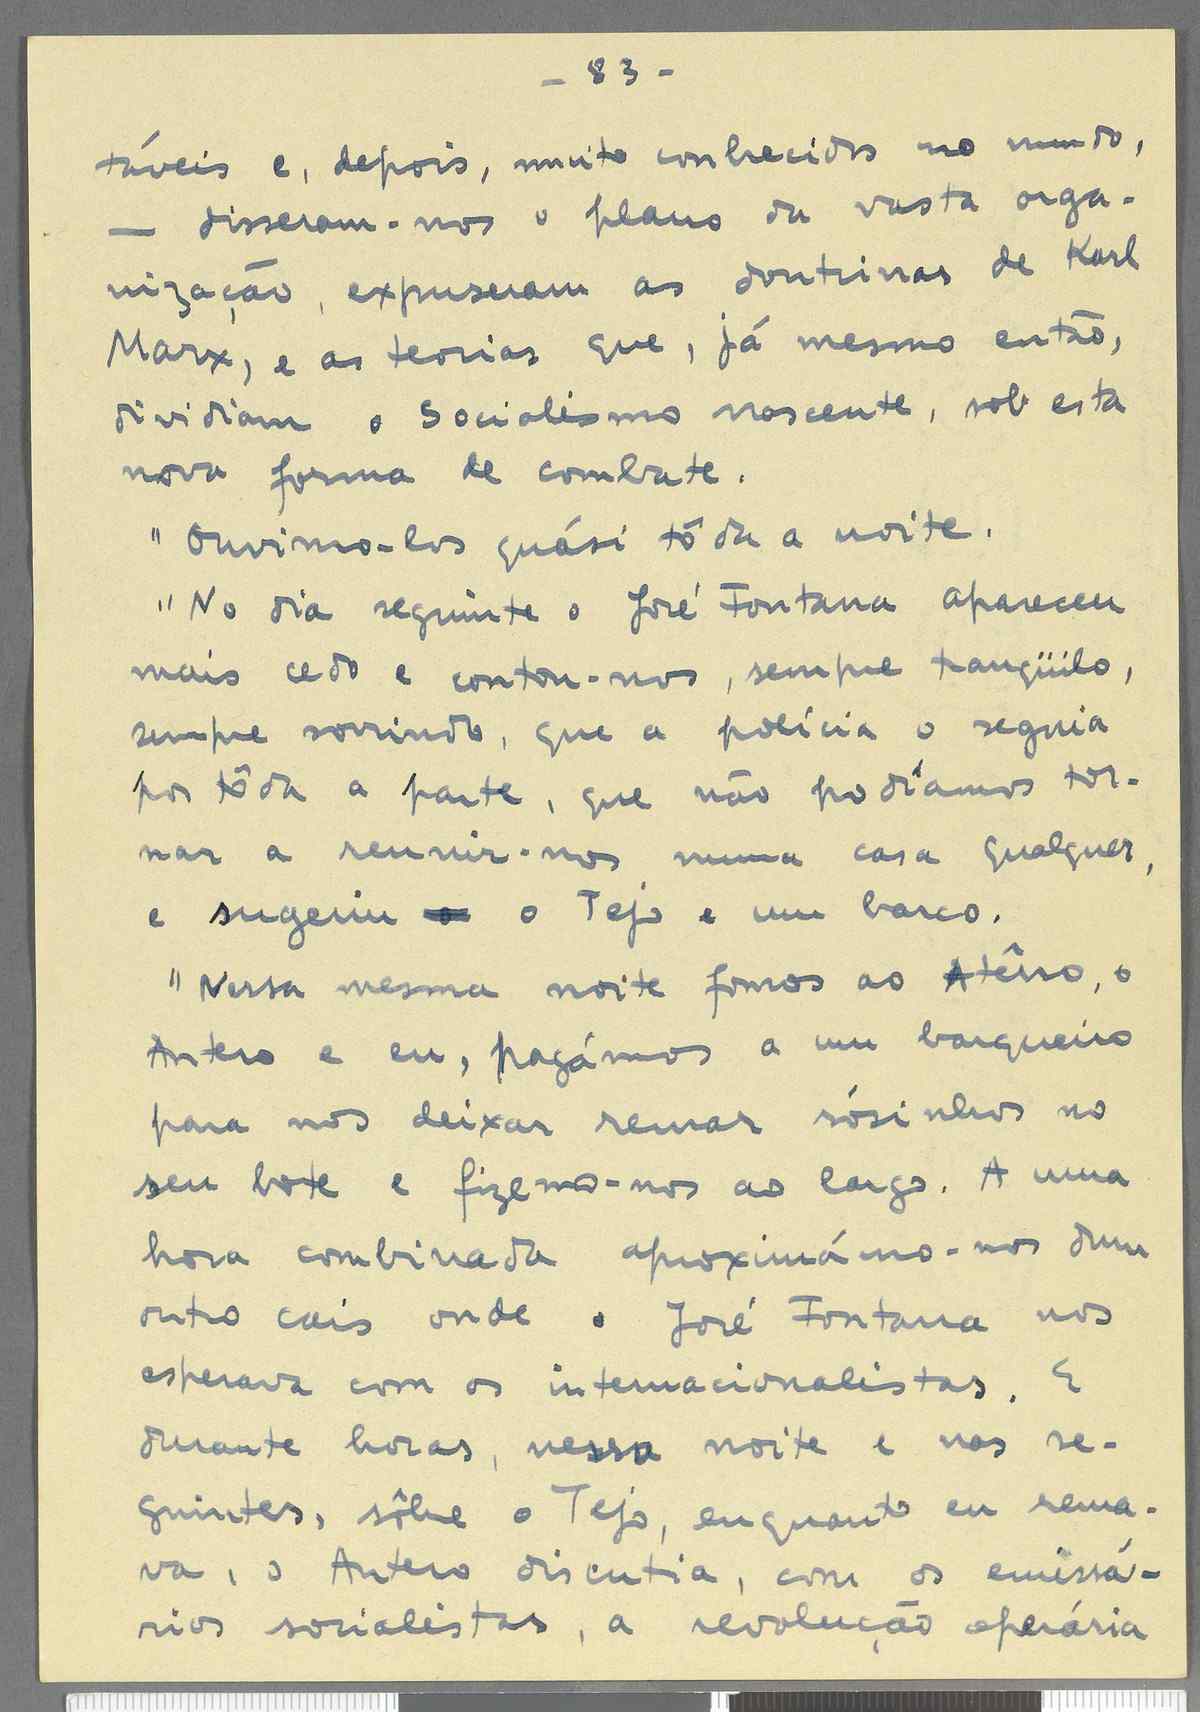 - 83 -
táveis e, depois, muito conhecidos no mundo,
— disseram-nos o plano da vasta orga-
nização, expuseram as doutrinas de Karl
Marx, e as teorias que, já mesmo então,
dividiam o Socialismo nascente, sob esta
nova forma de combate.
"Ouvimo-los quási tôda a noite.
"No dia seguinte o José Fontana apareceu
mais cedo e contou-nos, sempre tranqüilo,
sempre sorrindo, que a polícia o seguia
por tôda a parte, que não podíamos tor-
nar a reunir-nos numa casa qualquer,
e sugeriu o Tejo e um barco.
"Nessa mesma noite fomos ao Atêrro, o
Antero e eu, pagámos a um barqueiro
para nos deixar remar sósinhos no
seu bote e fizemo-nos ao largo. A uma
hora combinada aproximámo-nos dum
outro cais onde o José Fontana nos
esperava com os internacionalistas. E
durante horas, nessa noite e nas se-
guintes, sôbre o Tejo, enquanto eu rema-
va, o Antero discutia, com os emissá-
rios socialistas, a revolução operária